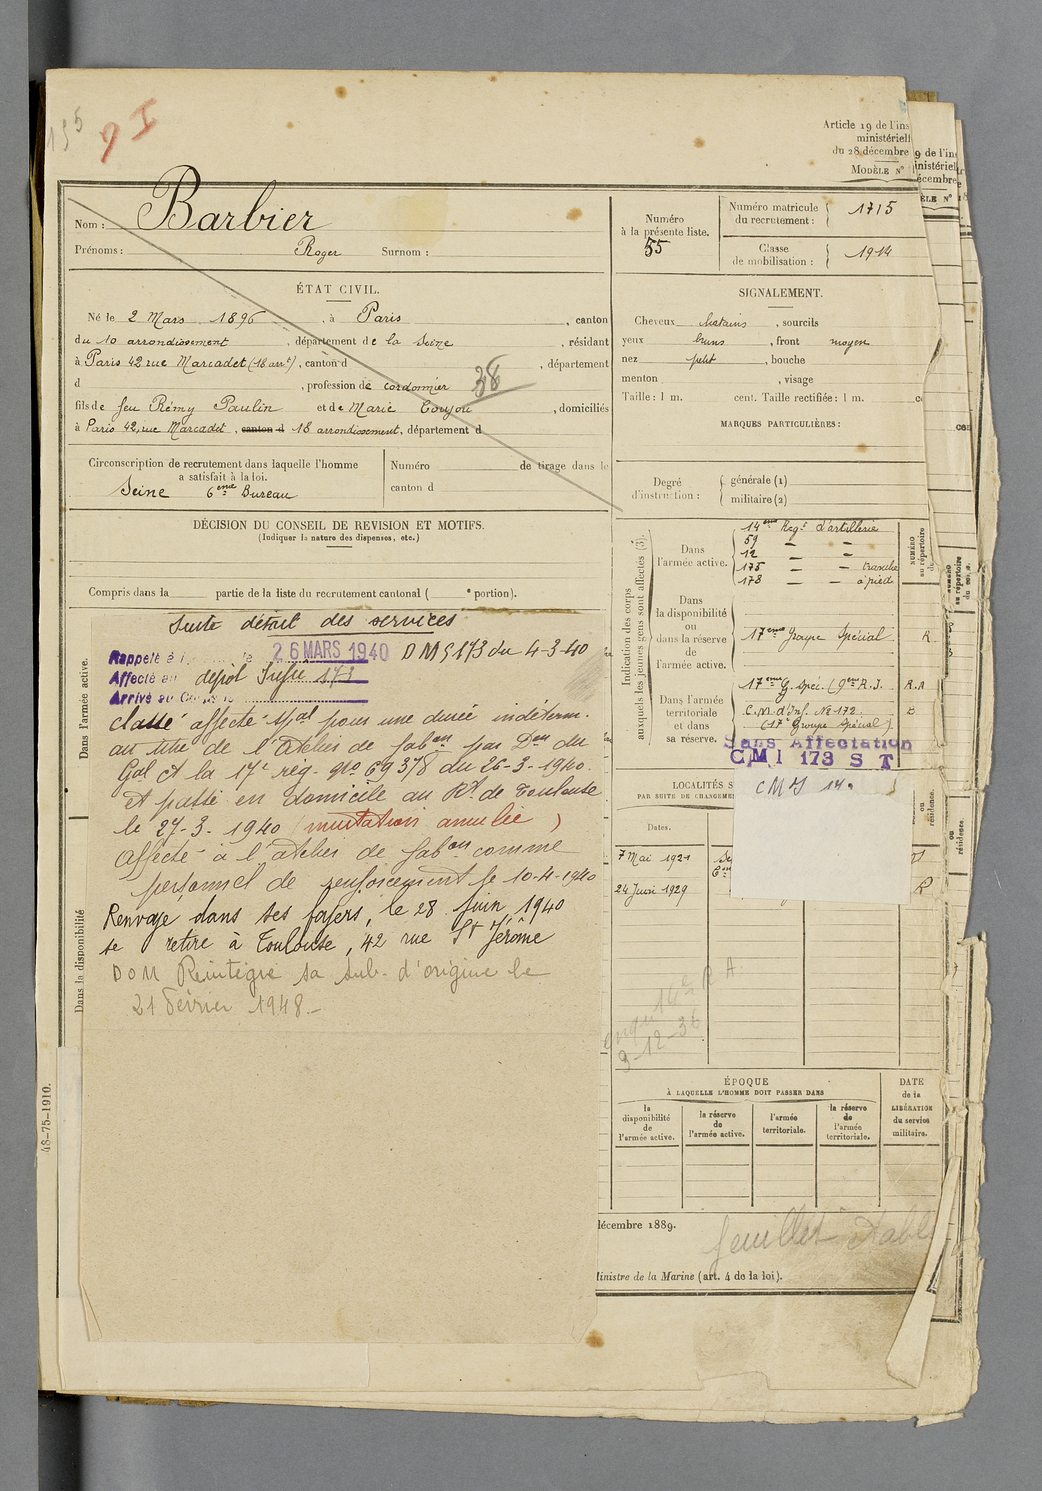 Article 19 de l'ins
ministériell
du 28 décembre
MODÈLE N°
Nom : Barbier
Prénoms : Roger Surnom :
Numéro
à la présente liste.
55
Numéro matricule
du recrutement : 1715
Classe
de mobilisation : 1914
ÉTAT CIVIL.
Né le 2 Mars 1896, à Paris, canton
du 10 arrondissement, département de la Seine, résidant
à Paris 42 rue Marcadet (18 arrt), canton d, département
d, profession de cordonnier
38
fils de feu Rémy Paulin et de Marie Coujou, domiciliés
à Paris 42, rue Marcadet, canton d 18 arrondissement, département d
SIGNALEMENT.
Cheveux chatains, sourcils
yeux bruns, front moyen
nez petit, bouche
menton, visage
Taille : 1 m. cent. Taille rectifiée : 1 m.
MARQUES PARTICULIÈRES :
Circonscription de recrutement dans laquelle l'homme
a satisfait à la loi.
Seine 6eme Bureau
Numéro de tirage dans le
canton d
Degré
d'instruction :
générale (1)
militaire (2)
DÉCISION DU CONSEIL DE REVISION ET MOTIFS.
(Indiquer la nature des dispenses, etc.)
Compris dans la partie de la liste du recrutement cantonal ( e portion).
Indication des corps
auxquels les jeunes gens sont affectés (3).
Dans
l'armée active.
14eme Regt d'artillerie
59 — —
12 — —
175 — — tranchée
178 — — à pied
NUMÉRO
au répertoire
Dans
la disponibilité
ou
dans la réserve
de
l'armée active.
17eme Groupe Spécial R
Dans l'armée
territoriale
et dans
sa réserve.
17eme G. Spéc. (9eme R.I. R.A
C.M. d'Inf. No 172
(17e Groupe Spécial)
Sans Affectation
CMI 173 S T
Dans l'armée active.
Suite détail des services
Rappelé à l le 26 MARS 1940 DMS 173 du 4-3-40
Affecté au dépôt Infie 173
Arrivé au Corps
Classé affecté spal pour une durée indéterm.
au titre de l'Atelier de fabon par Don du
Gal Ct la 17e rég. No 69378 du 26-3-1940.
et passé en domicile au Rt de Toulouse
le 27-3-1940 (mutation annulée)
Affecté à l'atelier de fabon comme
personnel de renforcement le 10-4-1940
Renvoyé dans ses foyers, le 28 Juin 1940
se retire à Toulouse, 42 rue St Jérôme
DOM Réintègre sa sub. d'origine le
21 Février 1948.-
Dans la disponibilité
LOCALITÉS S
PAR SUITE DE CHANGEME
Dates.
7 Mai 1921
24 Juin 1929
9-12-36
ÉPOQUE
À LAQUELLE L'HOMME DOIT PASSER DANS
la
disponibilité
de
l'armée active.
la réserve
de
l'armée active.
l'armée
territoriale.
la réserve
de
l'armée
territoriale.
DATE
de la
LIBÉRATION
du service
militaire.
décembre 1889.
feuillet
Ministre de la Marine (art. 4 de la loi).
48-75-1910.